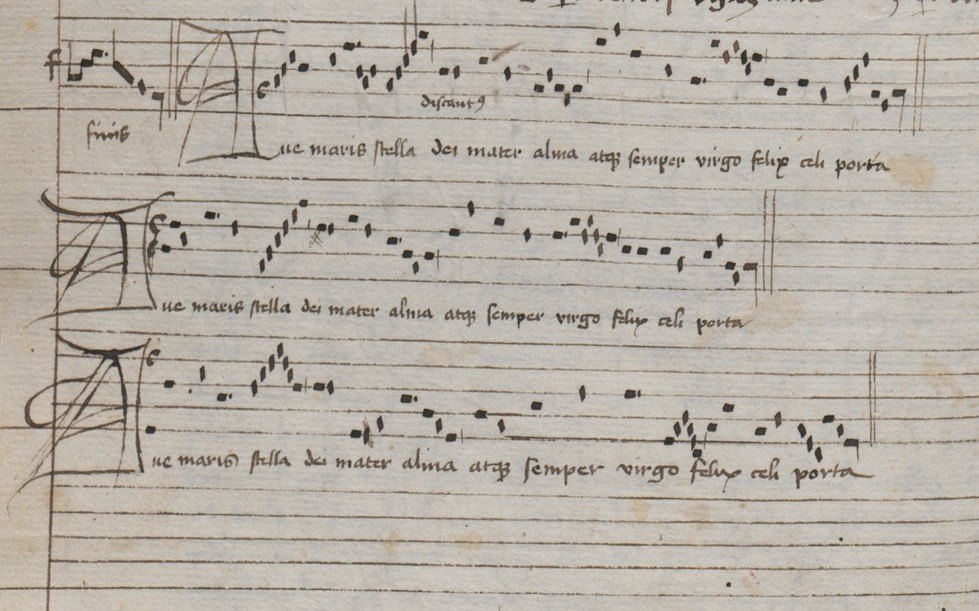 finis
discant9
Ave maris stella dei mater alma atq3 semper virgo felix celi porta
Ave maris stella dei mater alma atq3 semper virgo felix celi porta
Ave maris stella dei mater alma atq3 semper virgo felix celi porta